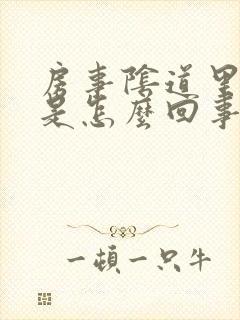 房事陰道里
是怎麼回事
一頓一只牛